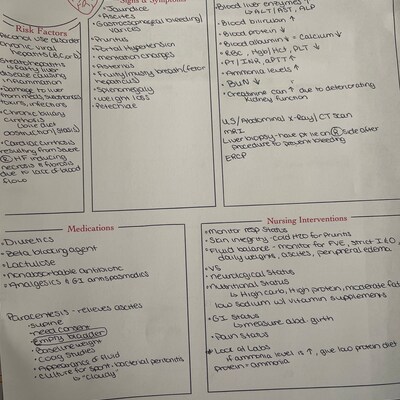 Risk Factors
Alcohol use disorder
chronic viral
hepatitis (B,C or D)
Steatohepatitis
↳ fatty liver
disease causing
inflammation
• Damage to liver
from meds, substances
toxins, infections
• Chronic biliary
cirrhosis
(bile duct
obstruction/stasis)
• Cardiac cirrhosis
resulting from severe
Ⓡ HF inducing
necrosis & fibrosis
due to lack of blood
flow
Signs & Symptoms
• Jaundice
• Ascites
• Gastroesophageal bleeding/
varices
• Pruritus
• Portal Hypertension
• mentation changes
• Asterixis
• Fruity/musty breath (fetor
hepaticus)
• Splenomegaly
• weight loss
• Petechiae
• Blood liver enzymes ↑
↳ ALT/AST, ALP
• Blood bilirubin ↑
• Blood protein ↓
• Blood albumin ↓ • Calcium ↓
• RBC, Hgb/Hct, PLT ↓
• PT/INR, aPTT ↑
• Ammonia levels ↑
• BUN ↓
• Creatinine can ↑ due to deteriorating
kidney function
U/S/Abdominal X-Ray/CT scan
MRI
Liver biopsy - have pt lie on Ⓡ side after
procedure to prevent bleeding
ERCP
Medications
• Diuretics
• Beta blocking agent
• Lactulose
• nonabsorbable antibiotic
• Analgesics & GI antispasmodics
Paracentesis - relieves ascites
• supine
• need consent
• empty bladder
• Baseline weight
• Coag studies
• Appearance of fluid
• Culture for spont. bacterial peritonitis
↳ "cloudy"
Nursing Interventions
• Monitor resp status
• Skin integrity - cold H2O for pruritis
• Fluid balance - monitor for FVE, strict I&O,
daily weights, ascites, peripheral edema
• VS
• Neurological Status
• Nutritional Status
↳ High carb, High protein, moderate fat
low sodium w/ vitamin supplements
• GI Status
↳ measure abd. girth
• Pain Status
* Look at Labs
if ammonia level is ↑, give low protein diet
protein = ammonia